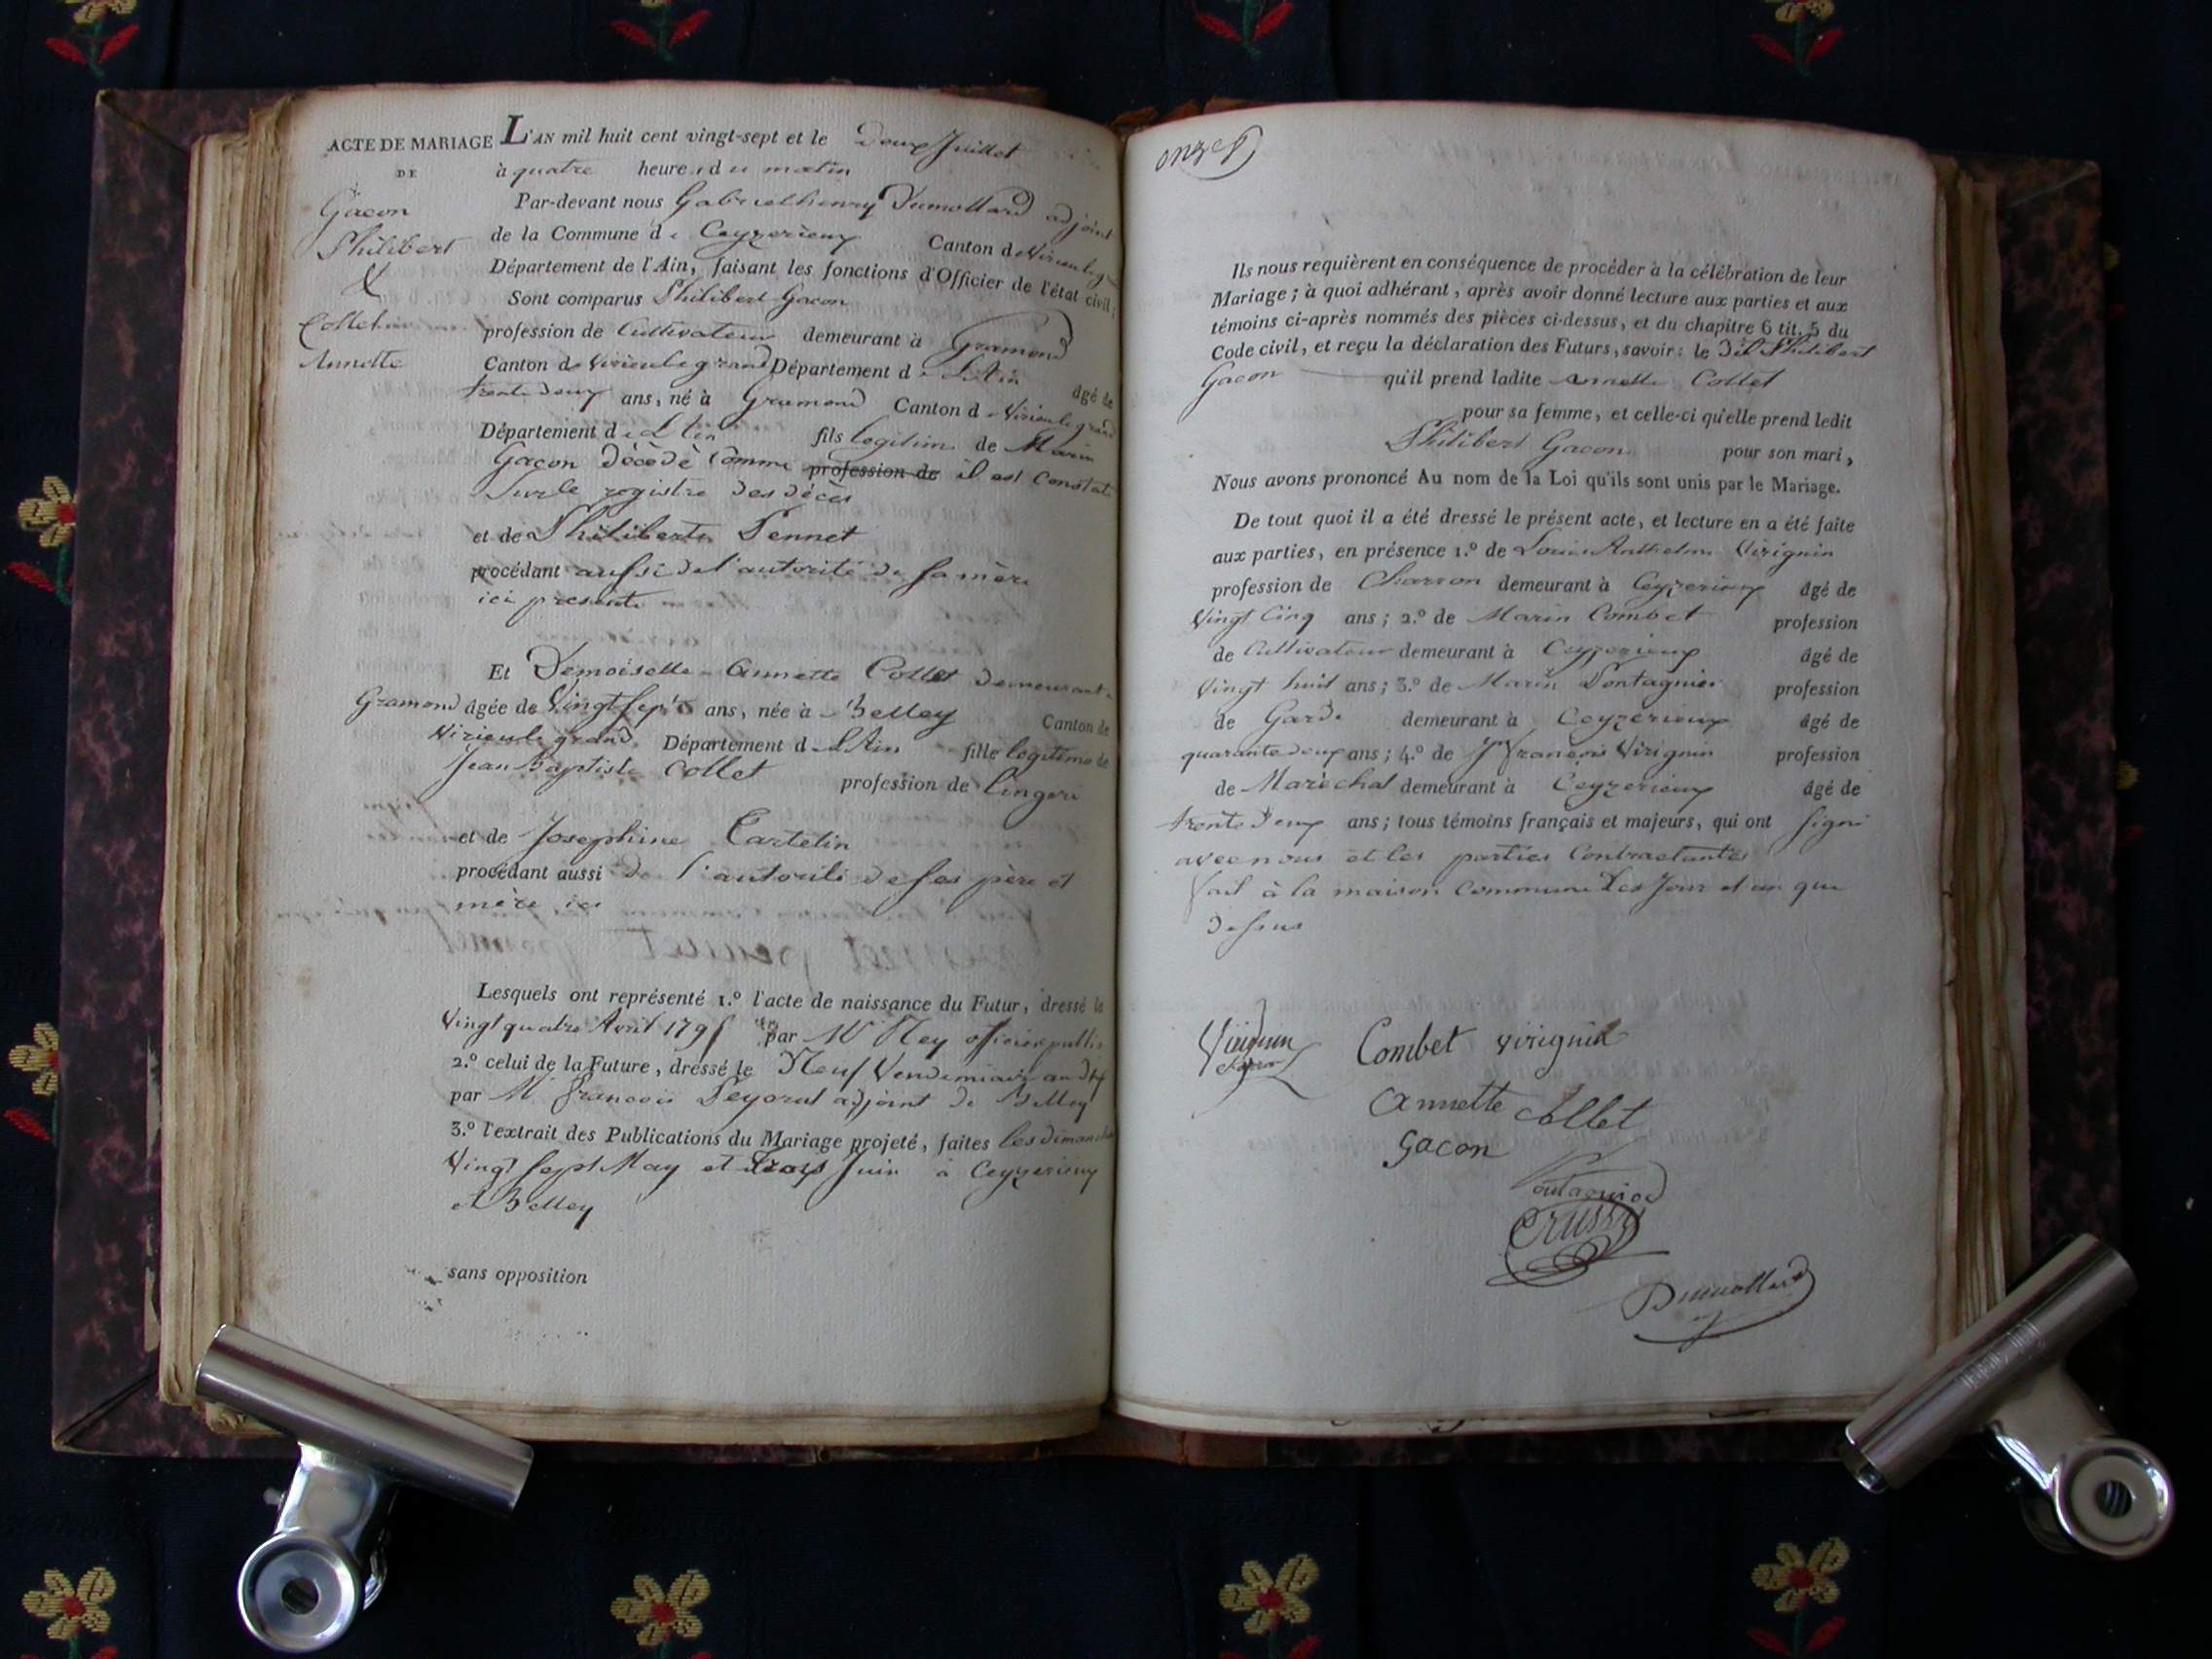 ACTE DE MARIAGE
DE
Gacon
Philibert
&
Collet
Annette
L'AN mil huit cent vingt-sept et le deux Juillet
à quatre heures du matin
Par-devant nous Gabriel henry Dumollard adjoint
de la Commune de Ceyzerieux Canton de Virieu le grand
Département de l'Ain, faisant les fonctions d'Officier de l'état civil;
Sont comparus Philibert Gacon
profession de Cultivateur demeurant à Gramond
Canton de Virieu le grand Département de L'Ain âgé de
trente deux ans, né à Gramond Canton de Virieu le grand
Département de L'Ain fils legitime de Marin
Gacon décédé comme profession de il est constaté
sur le registre des décès
et de Philiberte Pennet
procédant aussi de l'autorité de sa mère
ici presente
Et Demoiselle Annette Collet demeurant à
Gramond âgée de Vingt sept ans, née à Belley Canton de
Virieu le grand Département de L'Ain fille legitime de
Jean Baptiste Collet profession de lingeri
et de Josephine Cartelin
procédant aussi de l'autorité de ses père et
mère ici
Lesquels ont représenté 1.º l'acte de naissance du Futur, dressé le
Vingt quatre Avril 1795 par Mr Rey officier public
2.º celui de la Future, dressé le Neuf Vendemiaire an
par Mr francois adjoint de Belley
3.º l'extrait des Publications du Mariage projeté, faites les dimanches
Vingt sept May et trois Juin à Ceyzerieux
et Belley
sans opposition
onze
Ils nous requièrent en conséquence de procéder à la célébration de leur
Mariage; à quoi adhérant, après avoir donné lecture aux parties et aux
témoins ci-après nommés des pièces ci-dessus, et du chapitre 6 tit. 5 du
Code civil, et reçu la déclaration des Futurs, savoir: le dit Philibert
Gacon qu'il prend ladite annette Collet
pour sa femme, et celle-ci qu'elle prend ledit
Philibert Gacon pour son mari,
Nous avons prononcé Au nom de la Loi qu'ils sont unis par le Mariage.
De tout quoi il a été dressé le présent acte, et lecture en a été faite
aux parties, en présence 1.º de Louis Anthelme Virignin
profession de Charron demeurant à Ceyzerieux âgé de
Vingt Cinq ans; 2.º de Marin Combet profession
de Cultivateur demeurant à Ceyzerieux âgé de
Vingt huit ans; 3.º de Marin Pontagnier profession
de Garde demeurant à Ceyzerieux âgé de
quarante deux ans; 4.º de Jn François Virignin profession
de Maréchal demeurant à Ceyzerieux âgé de
trente deux ans; tous témoins français et majeurs, qui ont signé
avec nous et les parties Contractantes
fait à la maison Commune Les Jour et an que
dessus
Virignin Combet virignin
annette collet
gacon
Dumollard